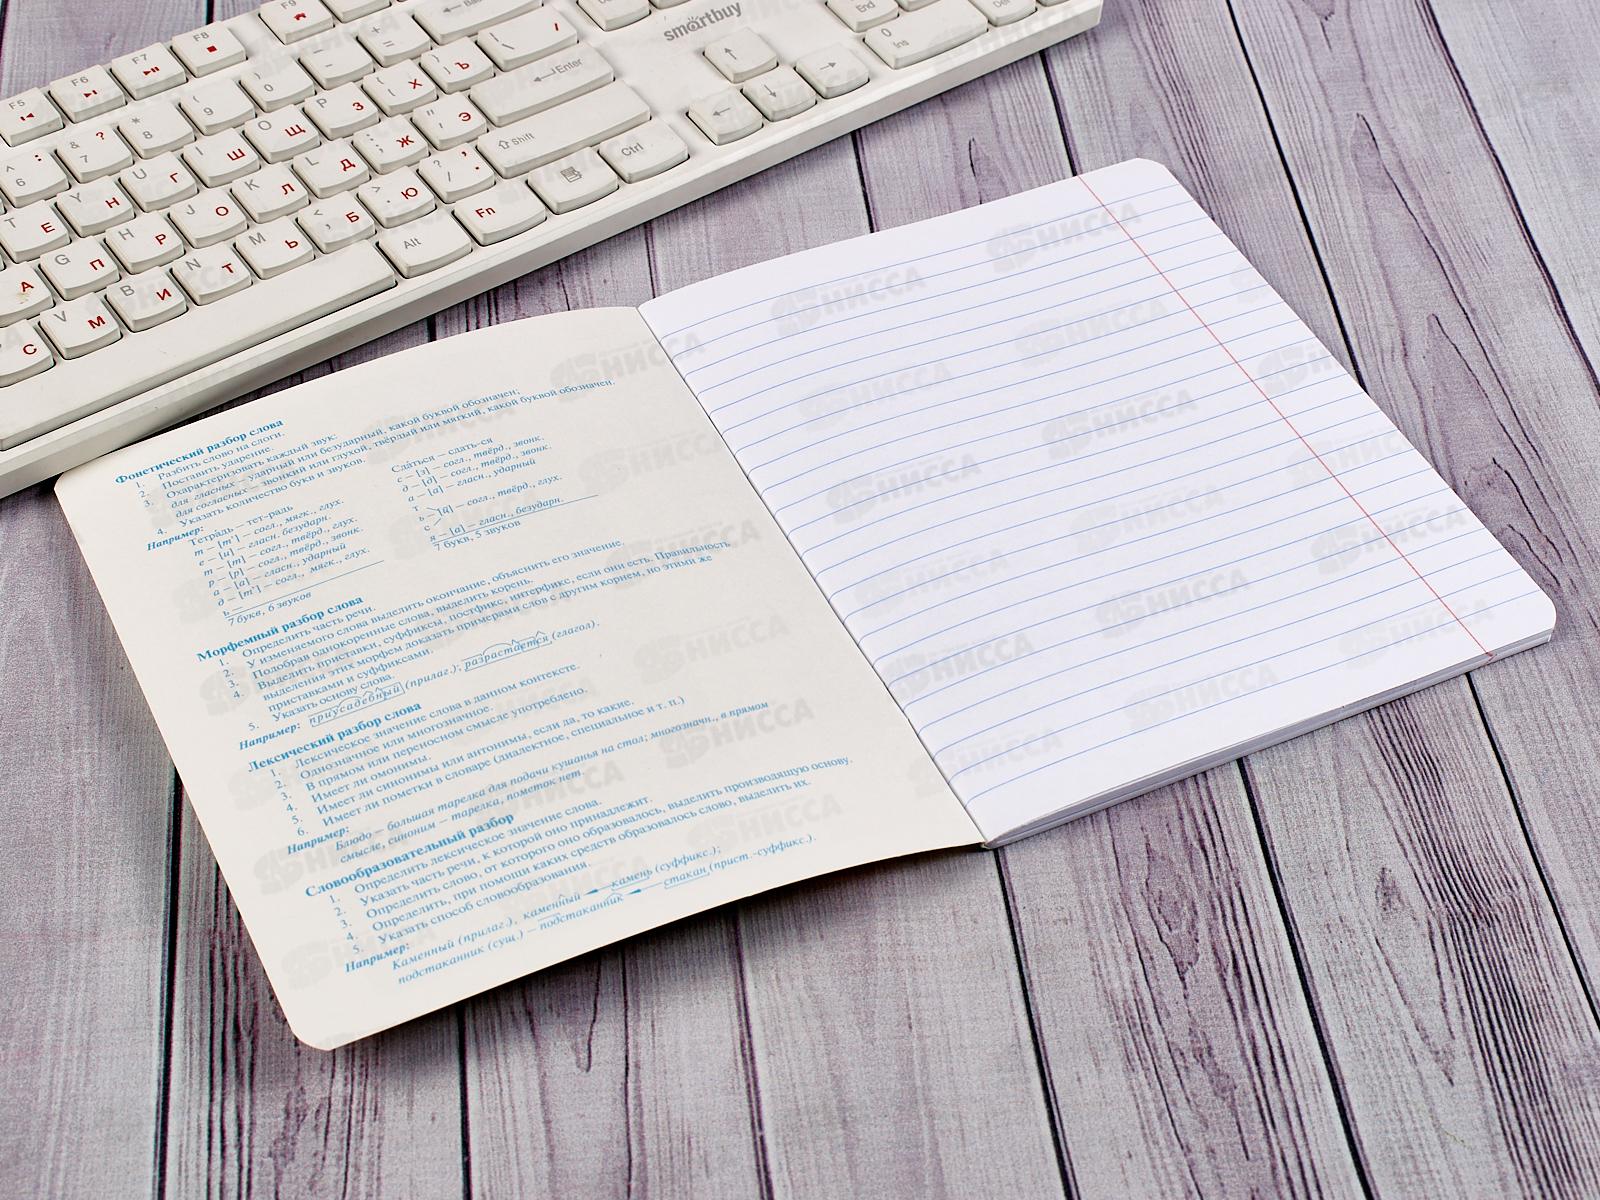 smartbuy
F5
F6
F7
F8
F9
Enter
Shift
Ctrl
Alt
Fn
End
Ins
Del
Фонетический разбор слова
1. Разбить слово на слоги.
2. Поставить ударение.
3. Охарактеризовать каждый звук:
для гласных – ударный или безударный, какой буквой обозначен;
для согласных – звонкий или глухой, твёрдый или мягкий, какой буквой обозначен.
4. Указать количество букв и звуков.
Например:
Тетрадь – тет-радь
т – [т'] – согл., мягк., глух.
е – [и] – гласн. безударн.
т – [т] – согл., твёрд., глух.
р – [р] – согл., твёрд., звонк.
а – [а] – гласн., ударный
д – [т'] – согл., мягк., глух.
ь –
7 букв, 6 звуков
Сдаться – сдать-ся
с – [з] – согл., твёрд., звонк.
д – [д] – согл., твёрд., звонк.
а – [а] – гласн., ударный
т
ь [ц] – согл., твёрд., глух.
с
я – [а] – гласн., безударн.
7 букв, 5 звуков
Морфемный разбор слова
1. Определить часть речи.
2. У изменяемого слова выделить окончание, объяснить его значение.
3. Подобрав однокоренные слова, выделить корень.
4. Выделить приставки, суффиксы, постфикс, интерфикс, если они есть. Правильность
выделения этих морфем доказать примерами слов с другим корнем, но этими же
приставками и суффиксами.
5. Указать основу слова.
Например: приусадебный (прилаг.); разрастается (глагол).
Лексический разбор слова
1. Лексическое значение слова в данном контексте.
2. Однозначное или многозначное.
3. В прямом или переносном смысле употреблено.
4. Имеет ли омонимы.
5. Имеет ли синонимы или антонимы, если да, то какие.
6. Имеет ли пометки в словаре (диалектное, специальное и т. п.)
Например:
Блюдо – большая тарелка для подачи кушанья на стол; многозначн., в прямом
смысле, синоним – тарелка, пометок нет
Словообразовательный разбор
1. Определить лексическое значение слова.
2. Указать часть речи, к которой оно принадлежит.
3. Определить слово, от которого оно образовалось, выделить производящую основу.
4. Определить, при помощи каких средств образовалось слово, выделить их.
5. Указать способ словообразования
Например:
Каменный (прилаг.), каменный камень (суффикс.);
подстаканник (сущ.) – подстаканник стакан (прист.-суффикс.).
НИССА